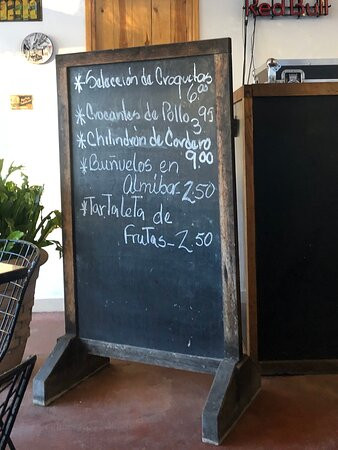 Red Bull
*Selección de Croquetas
6.00
*Crocantes de Pollo
3.95
*Chilindrón de Cordero
9.00
*Buñuelos en
Almíbar 2.50
*Tartaleta de
Frutas-2.50